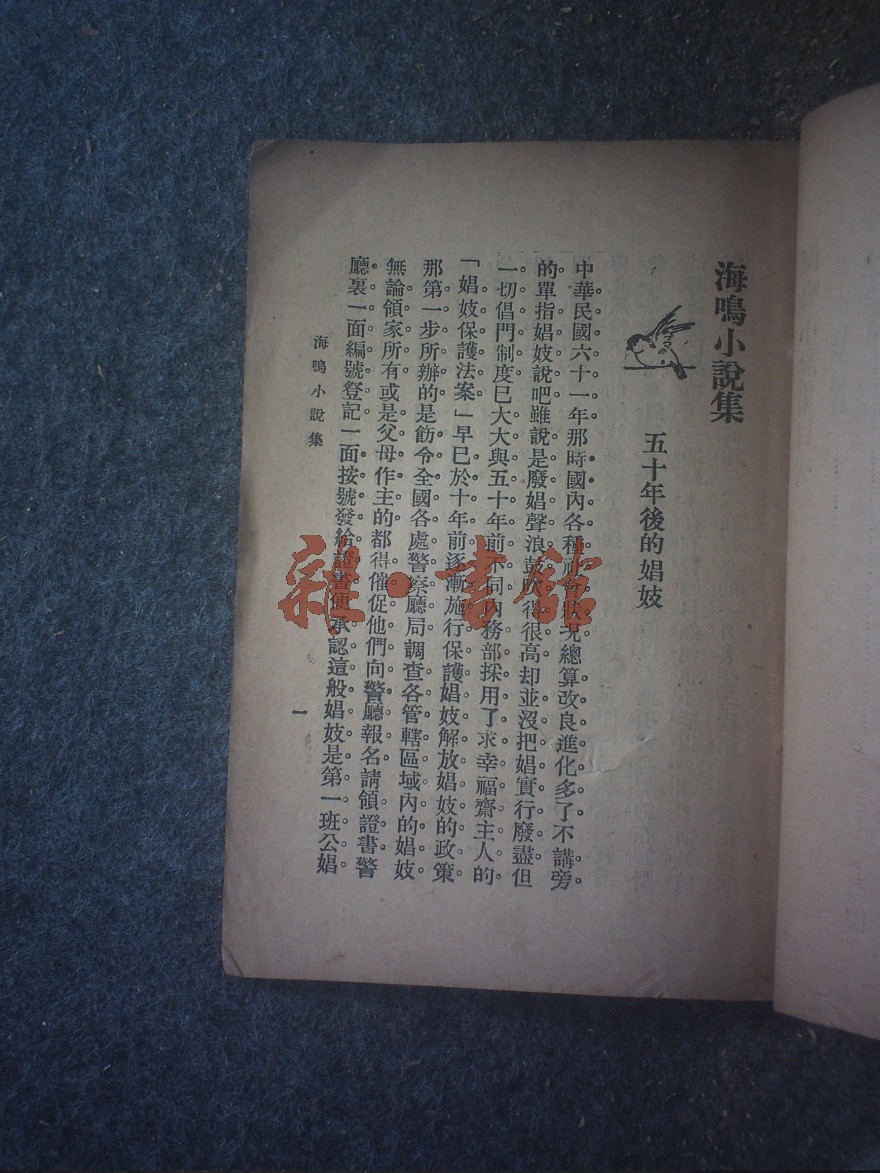 海鳴小說集
五十年後的娼妓
中華民國六十一年那時國內各種社會狀況總算改良進化多了不講旁
的單指娼妓說吧雖說是廢娼聲浪鼓吹得很高却並沒把娼實行廢盡但
一切倡門制度已大大與五十年前不同內務部採用了求幸福齋主人的
「娼妓保護法案」早已於十年前逐漸施行保護娼妓解放娼妓的政策
那第一步所辦的是飭令全國各處警察廳局調查各管轄區域內的娼妓
無論領家所有或是父母作主的都得催促他們向警廳報名請領證書警
廳裏一面編號登記一面按號發給證書便承認這般娼妓是第一班公娼
海鳴小說集
一
雜·書館